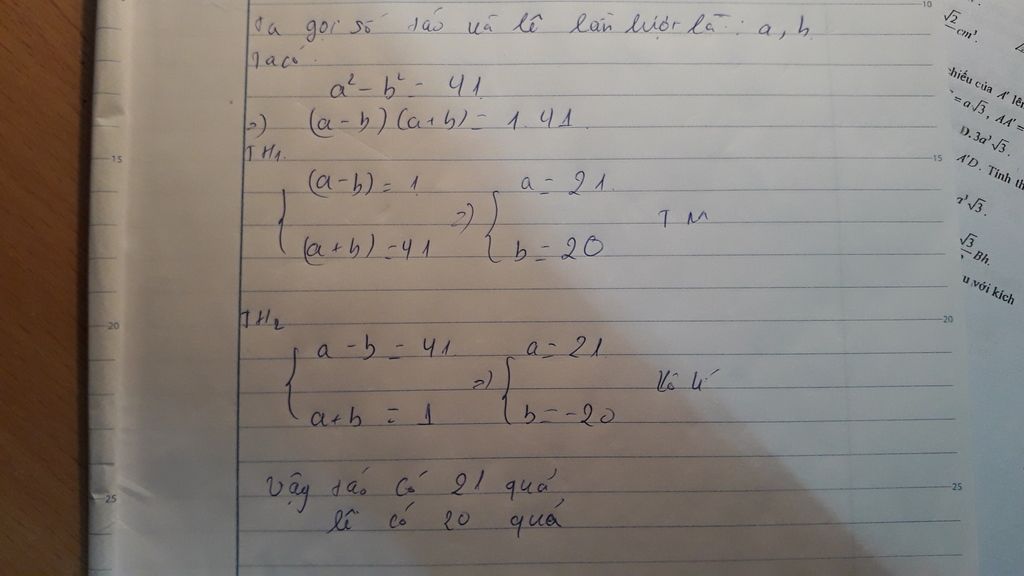 Ta gọi số táo và lê lần lượt là: a, b
Ta có:
a² - b² = 41
=) (a - b) (a + b) = 1. 41
TH1.
(a - b) = 1
(a + b) = 41
=)
a = 21.
b = 20
TM
TH2
a - b = 41
a + b = 1
=)
a = 21
b = -20
Vô lí
Vậy táo có 21 quả
lê có 20 quả
10
15
15
20
20
25
25
√2
cm³.
chiếu của A' lên
= a√3, AA' =
D. 3a³√3.
A'D. Tính th
a³√3.
√3
Bh.
u với kích